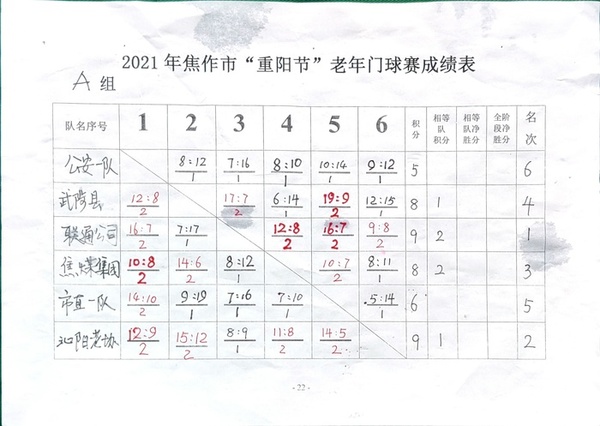 2021年焦作市“重阳节”老年门球赛成绩表
A 组
队名序号 1 2 3 4 5 6 积分 相等队积分 相等队净胜分 全阶段净胜分 名次
公安一队 8:12/1 7:16/1 8:10/1 10:14/1 9:12/1 5 6
武陟县 12:8/2 17:7/2 6:14/1 19:9/2 12:15/1 8 1 4
联通公司 16:7/2 7:17/1 12:8/2 16:7/2 9:8/2 9 2 1
焦煤集团 10:8/2 14:6/2 8:12/1 10:7/2 8:11/1 8 2 3
市直一队 14:10/2 9:19/1 7:16/1 7:10/1 5:14/1 6 5
沁阳老协 12:9/2 15:12/2 8:9/1 11:8/2 14:5/2 9 1 2
- 22 -